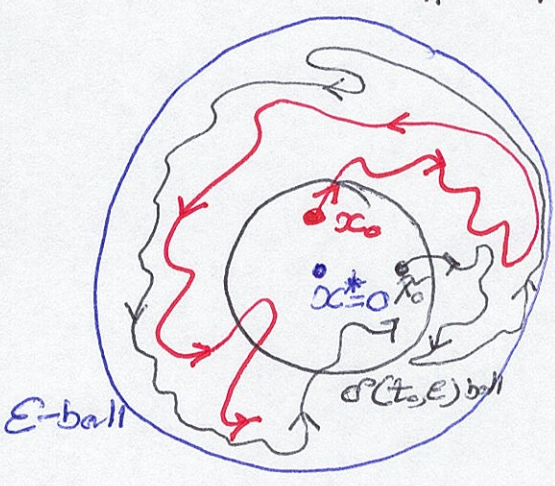 x₀
x*=0
x₀
δ(t₀,ε) ball
ε-ball